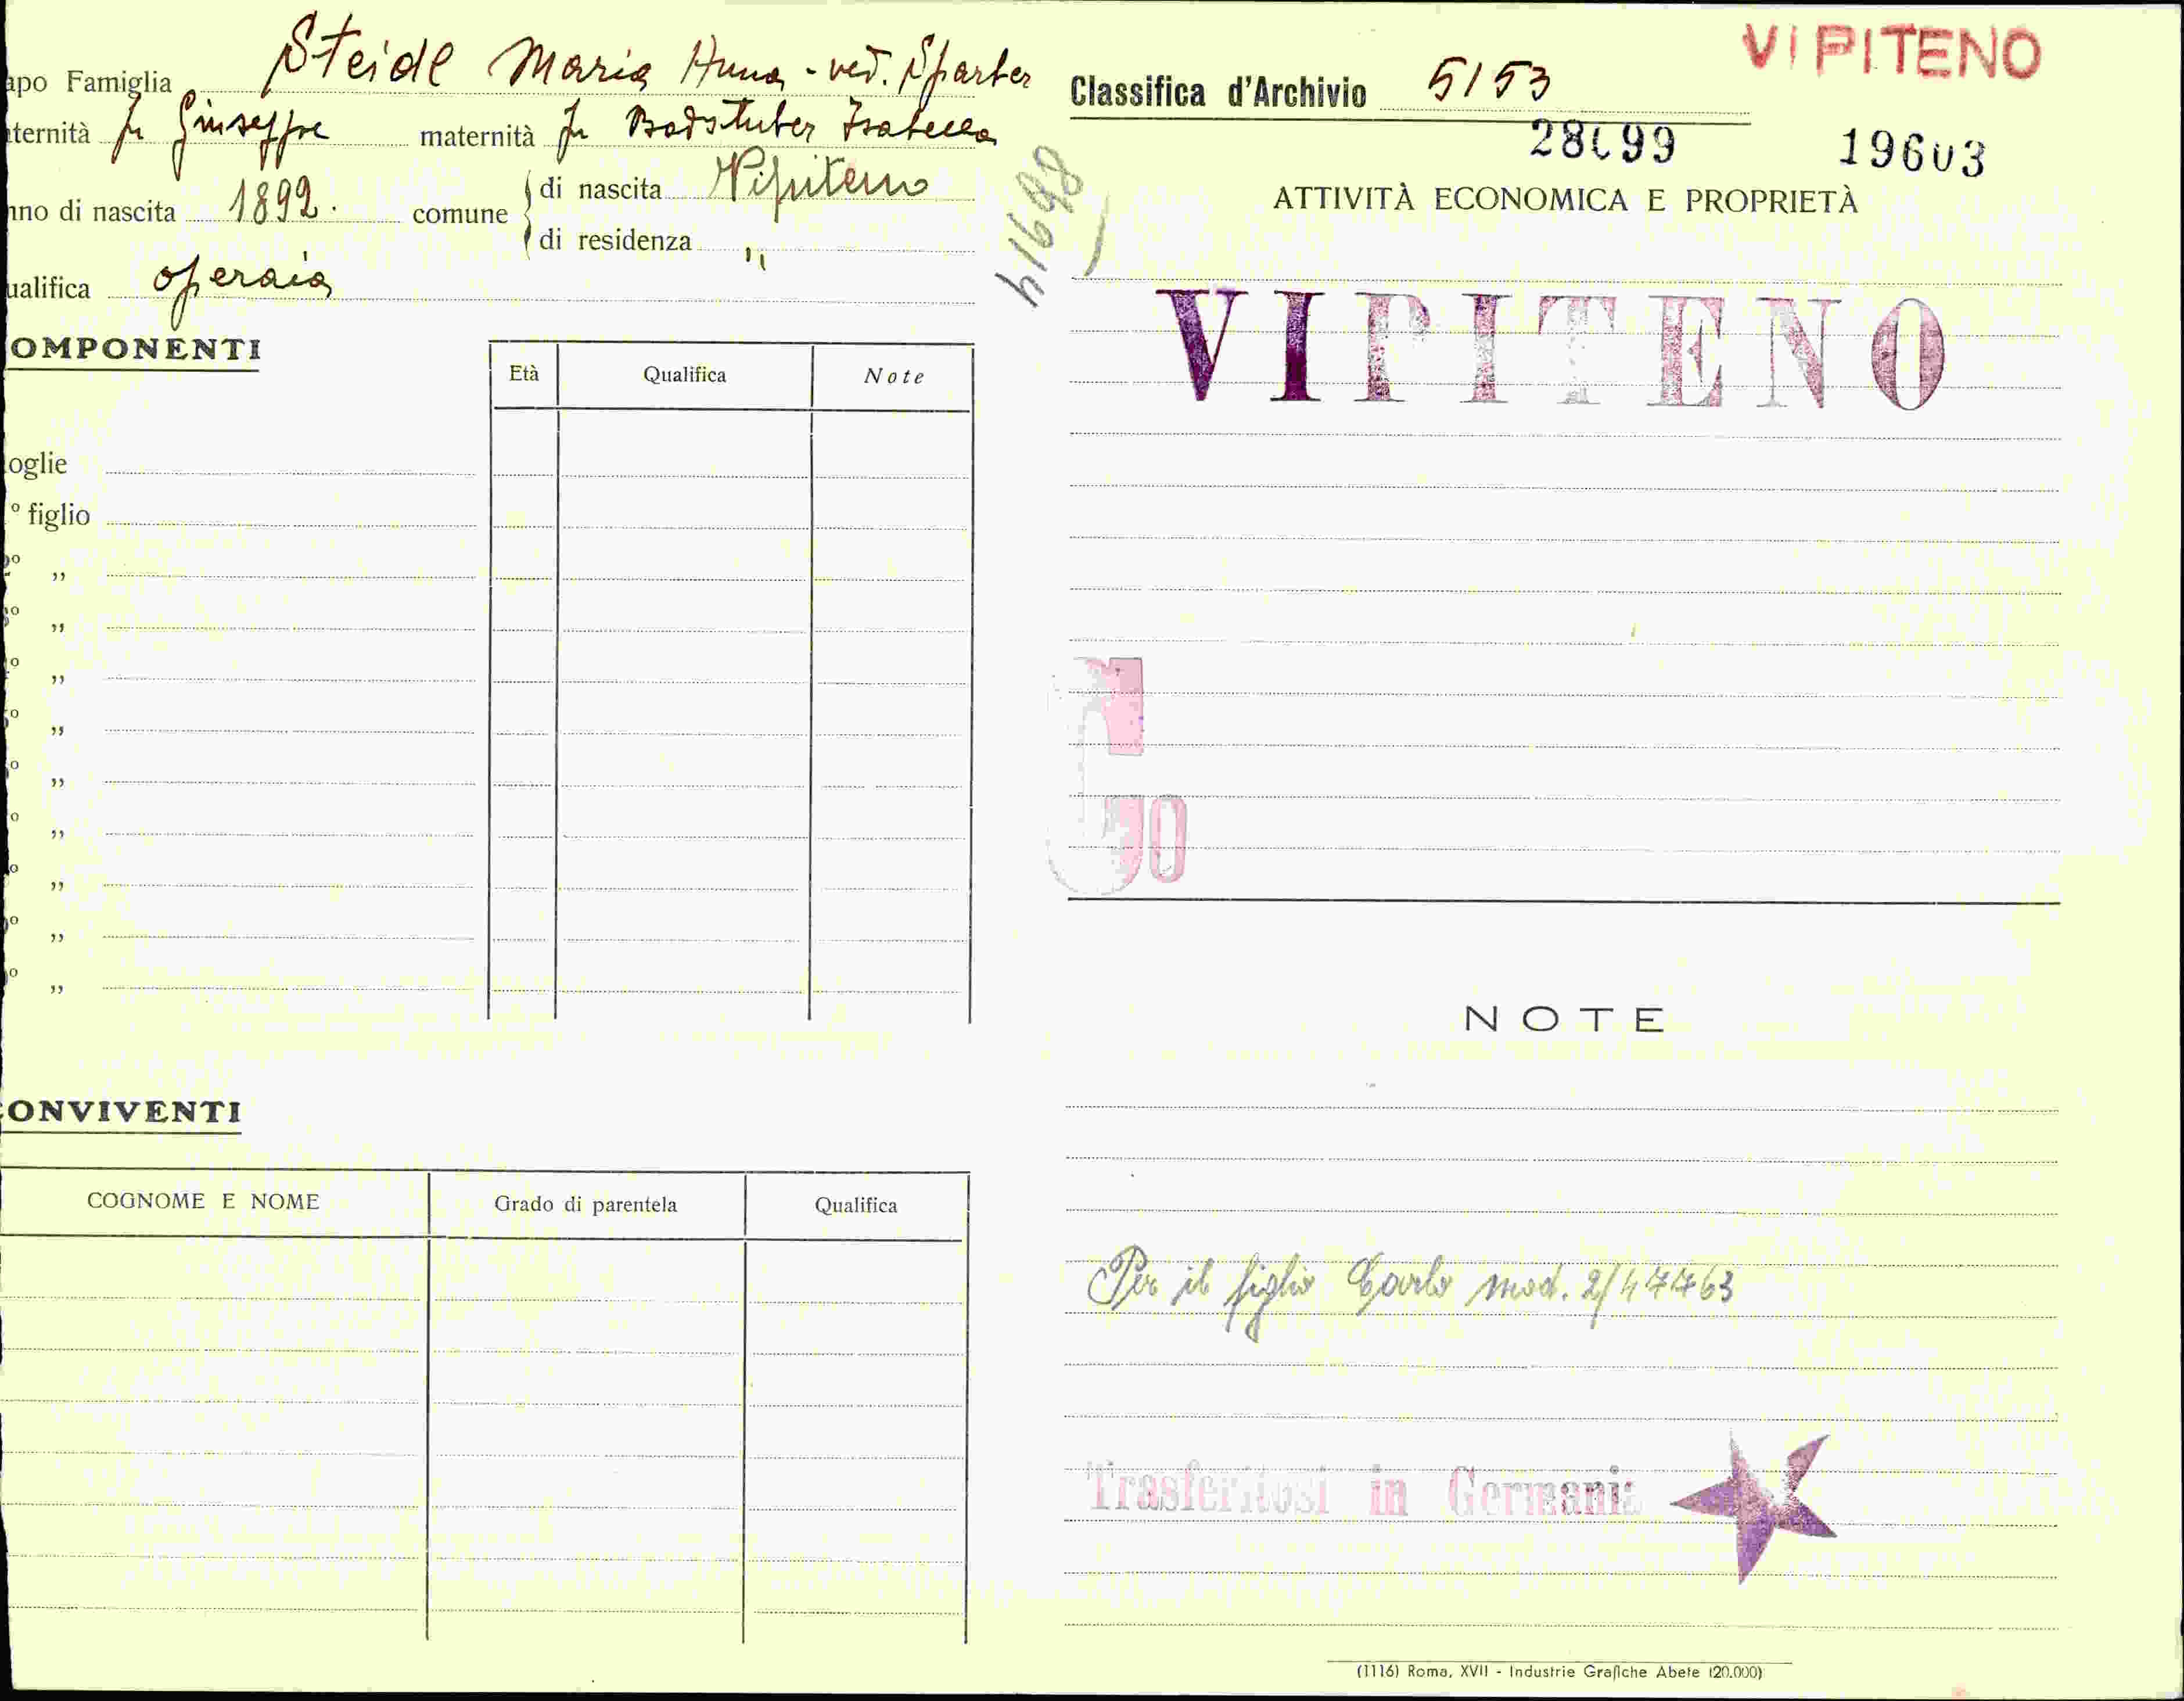 apo Famiglia Steidl Maria Anna - ved. Sparber
ternità fu Giuseppe maternità fu Badstuber Isabella
nno di nascita 1892. comune di nascita Vipiteno
di residenza "
ualifica operaia
OMPONENTI
Età Qualifica Note
oglie
° figlio
º „
º „
º „
º „
º „
º „
º „
º „
º „
ONVIVENTI
COGNOME E NOME Grado di parentela Qualifica
VIPITENO
Classifica d'Archivio 5153
28099 19603
41698
ATTIVITÀ ECONOMICA E PROPRIETÀ
VIPITENO
NOTE
Per il figlio Carlo mod. 2/47763
Trasferitosi in Germania
(1116) Roma, XVII - Industrie Grafiche Abete (20.000)